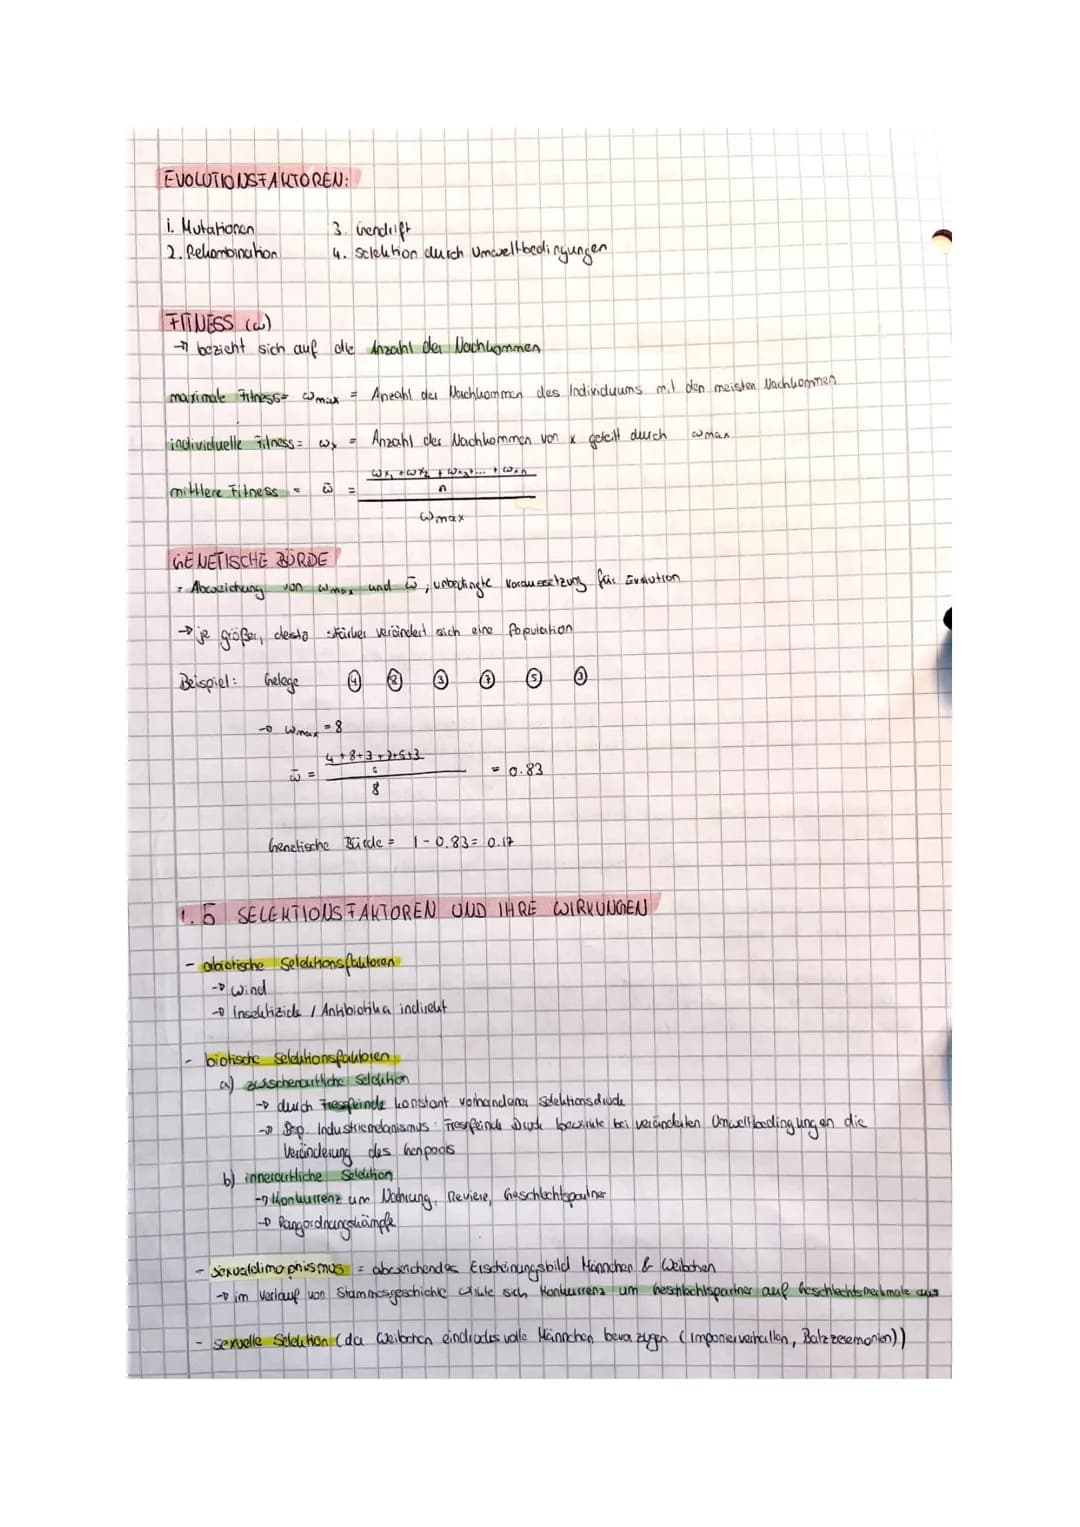 EVOLUTIONSFAKTOREN:
1. Mutationen 3. Gendrift
2. Rekombination 4. Selektion durch Umweltbedingungen
FITNESS (ω)
→ bezieht sich auf die Anzahl der Nachkommen
maximale Fitness = ωmax = Anzahl der Nachkommen des Individuums mit den meisten Nachkommen
individuelle Fitness = ωx = Anzahl der Nachkommen von x geteilt durch ωmax
ωx1 + ωx2 + ωx3 + ... + ωxn
mittlere Fitness = ω̄ =
n
ωmax
GENETISCHE BÜRDE
= Abweichung von ωmax und ω̄, unbedingte Voraussetzung für Evolution
→ je größer, desto stärker verändert sich eine Population
Beispiel: Gelege 4 8 3 7 5 3
→ ωmax = 8
4+8+3+7+5+3
ω̄ = 6 = 0.83
8
Genetische Bürde = 1 - 0.83 = 0.17
1.5 SELEKTIONSFAKTOREN UND IHRE WIRKUNGEN
- abiotische Selektionsfaktoren
→ Wind
→ Insektizide / Antibiotika indirekt
- biotische Selektionsfaktoren
a) zwischenartliche Selektion
→ durch Fressfeinde konstant vorhandener Selektionsdruck
→ Bsp. Industriemelanismus: Fressfeinde Druck bewirkte bei veränderten Umweltbedingungen die
Veränderung des Genpools
b) innerartliche Selektion
→ Konkurrenz um Nahrung, Reviere, Geschlechtspartner
→ Rangordnungskämpfe
- Sexualdimorphismus = abweichendes Erscheinungsbild Männchen & Weibchen
→ im Verlauf von Stammesgeschichte wirkte sich Konkurrenz um Geschlechtspartner auf Geschlechtsmerkmale aus
- sexuelle Selektion (da Weibchen eindrucksvolle Männchen bevorzugen (Imponierverhalten, Balzzeremonien))